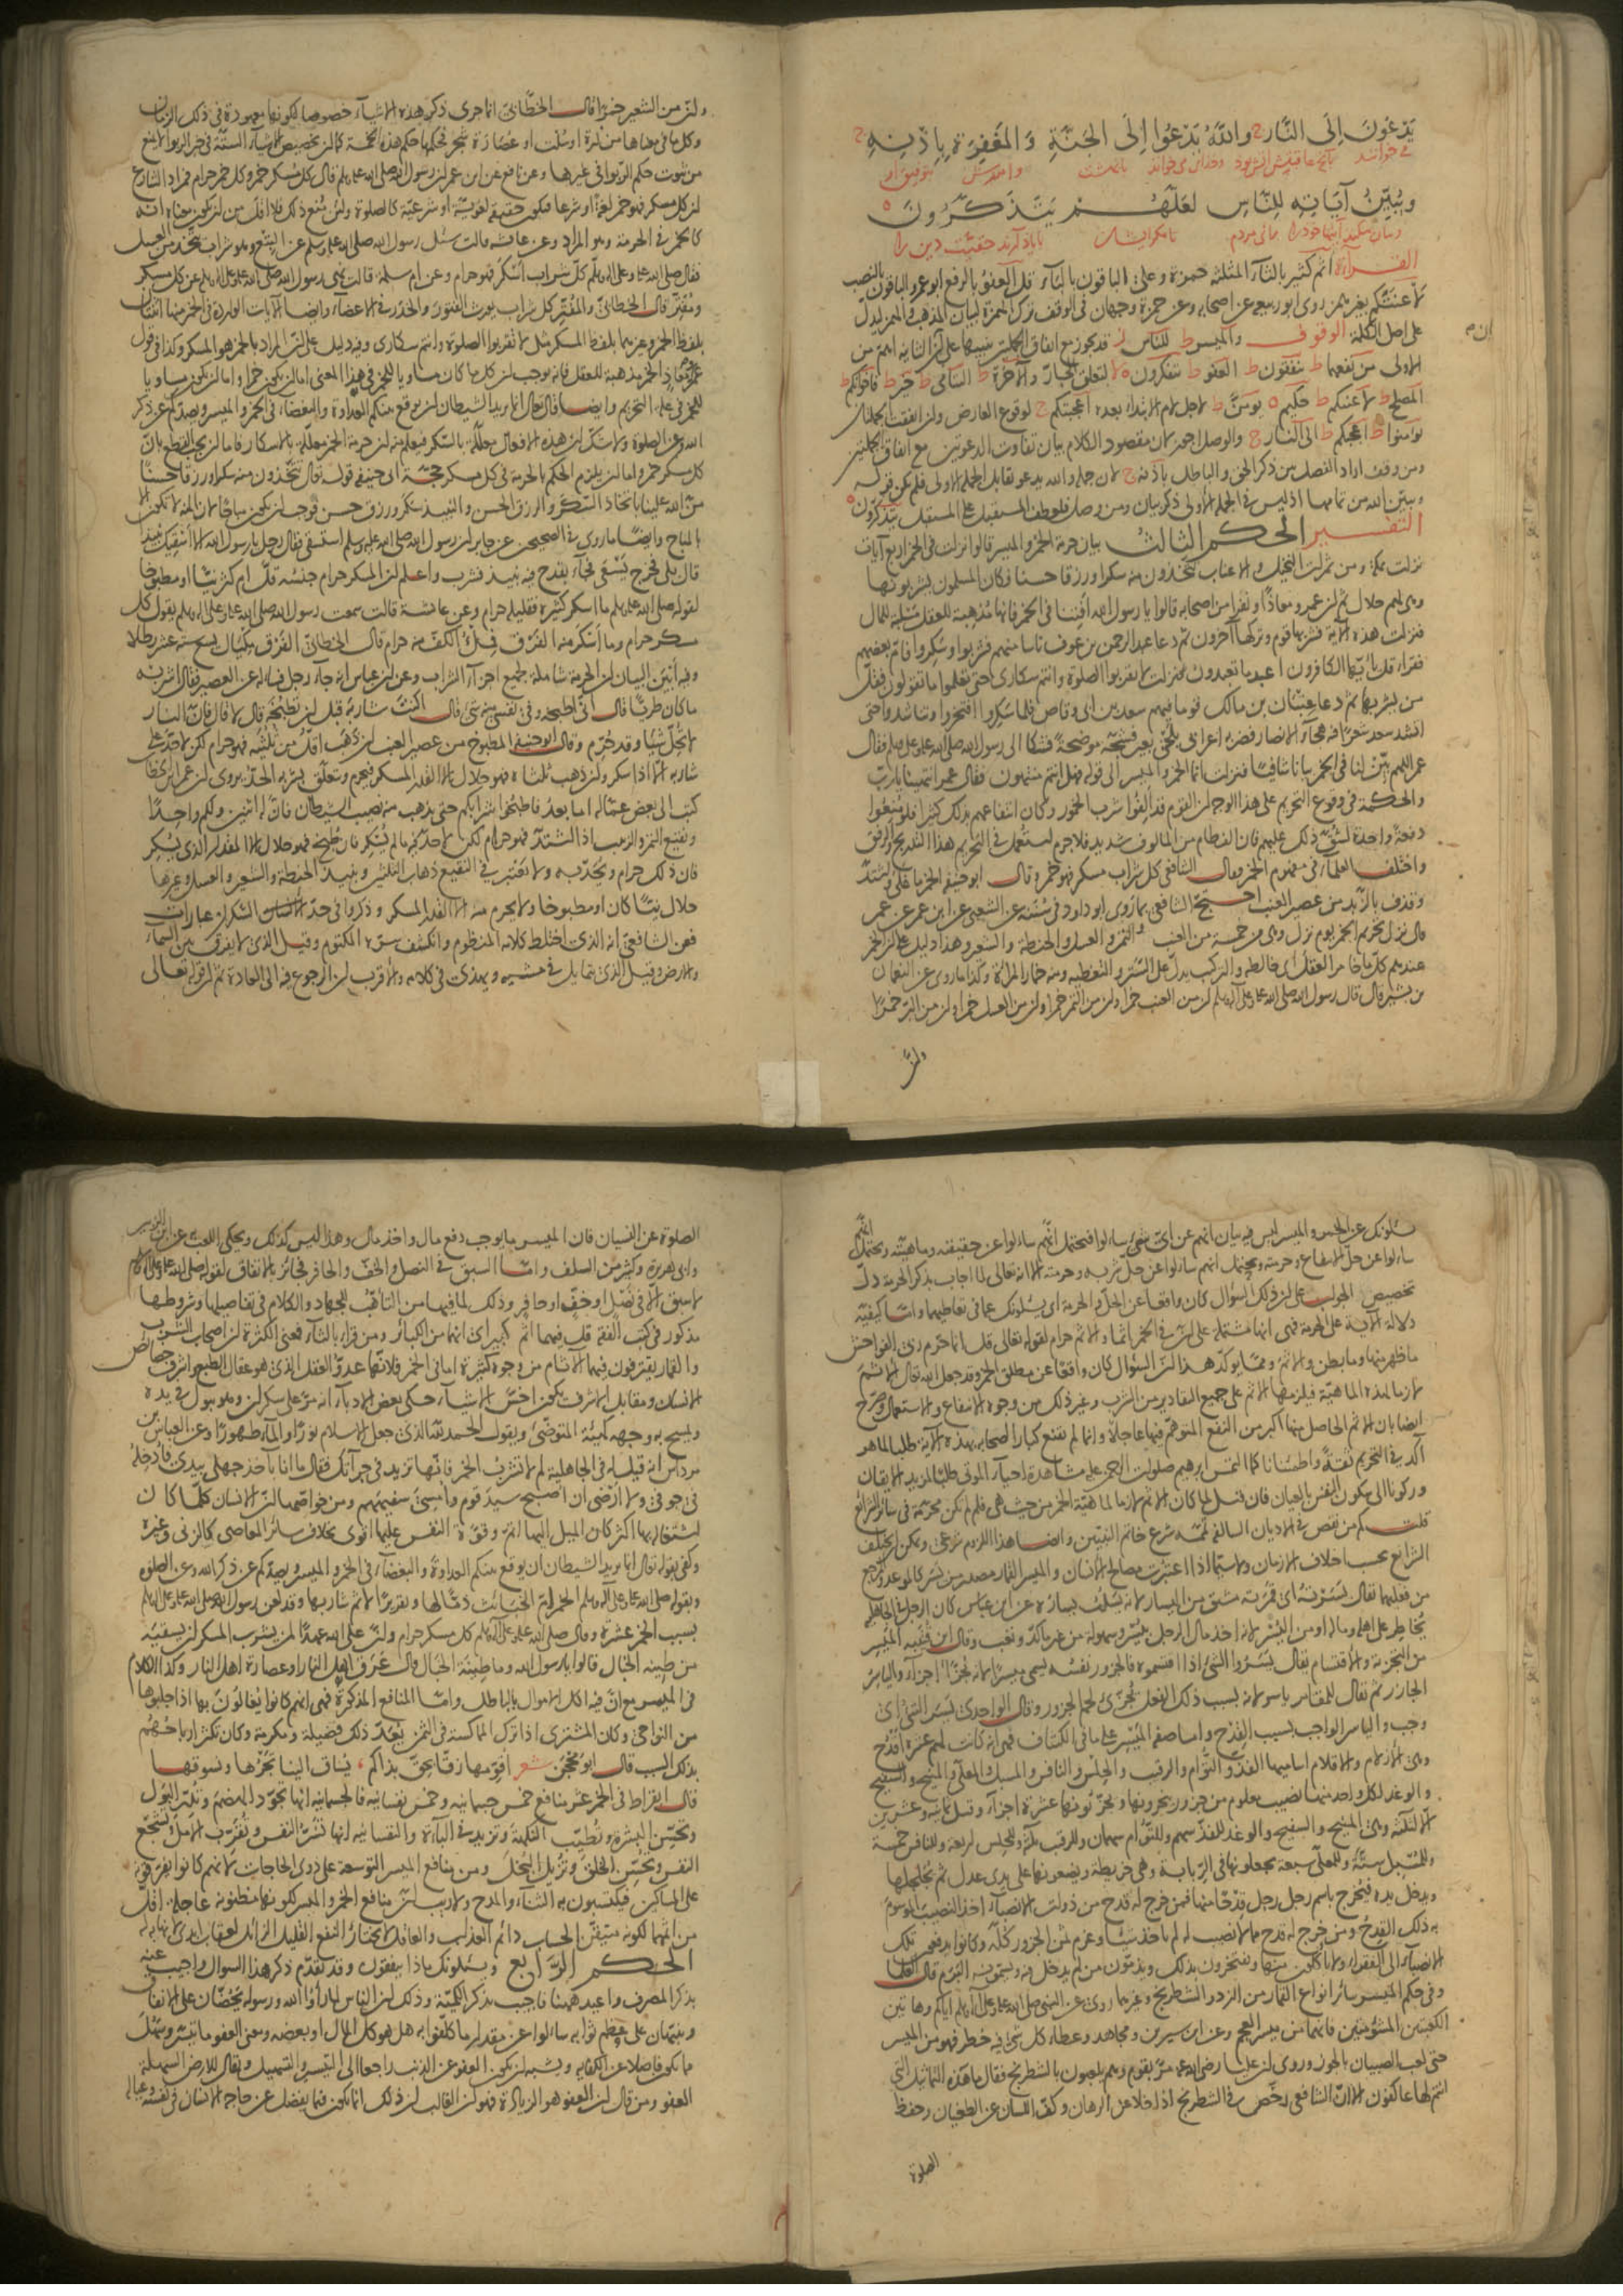 يَدْعُونَ اِلَى النَّارِ وَاللَّهُ يَدْعُوا اِلَى الجَنَّةِ وَالمَغْفِرَةِ بِاِذْنِهِ
وَيُبَيِّنُ آيَاتِهِ لِلنَّاسِ لَعَلَّهُمْ يَتَذَكَّرُونَ
القراءة اثم كثير بالثاء المثلثة حمزة وعلي الباقون بالباء قل العفو بالرفع ابو عمرو الباقون بالنصب
لاعنتكم بغير همز روى ابو ربيعة عن اصحابه وعن حمزة وجهان في الوقف ترك الهمزة لبيان المذهب والهمز ليدل
على اصل الكلمة الوقوف والميسر ط للناس ز قد يجوز مع اتفاق الجملتين تنبيها على ان الثانية اهم من
الاولى من نفعهما ط ينفقون ط العفو ط تتفكرون ه لا لتعلق الجار والآخرة ط اليتامى ط خير ط فاخوانكم ط
المصلح ط لاعنتكم ط حكيم ه يؤمن ط لاجل لام الابتداء بعده اعجبتكم ج لوقوع العارض وان اتفقت الجملتان
يؤمنوا ط اعجبكم ط الى النار ج والوصل اجوز لان مقصود الكلام بيان تفاوت الدعوتين مع اتفاق الجملتين
ومن وقف اراد الفصل بين ذكر الحق والباطل باذنه ج لان جملة والله يدعو تقابل الجملة الاولى فلم يكن قوله
ويبين الله من تمامها اذ ليس في الجملة الاولى ذكر بيان ومن وصل فلعطف المستقبل على المستقبل يتذكرون ه
التفسير الحكم الثالث بيان حرمة الخمر والميسر قالوا نزلت في الخمر اربع آيات
نزلت بمكة ومن ثمرات النخيل والاعناب تتخذون منه سكرا ورزقا حسنا فكان المسلمون يشربونها
وهي لهم حلال ثم ان عمر ومعاذا ونفرا من اصحابه قالوا يا رسول الله افتنا في الخمر فانها مذهبة للعقل مسلبة للمال
فنزلت هذه الآية فشربها قوم وتركها آخرون ثم دعا عبد الرحمن بن عوف ناسا منهم فشربوا وسكروا فأم بعضهم
فقرأ قل يا ايها الكافرون اعبد ما تعبدون فنزلت لا تقربوا الصلوة وانتم سكارى حتى تعلموا ما تقولون فقل
من يشربها ثم دعا عتبان بن مالك قوما فيهم سعد بن ابي وقاص فلما سكروا افتخروا وتناشدوا حتى
انشد سعد شعرا فيه هجاء الانصار فضربه اعرابي بلحي بعير فشجه موضحة فشكا الى رسول الله صلى الله عليه وسلم فقال
عمر اللهم بين لنا في الخمر بيانا شافيا فنزلت انما الخمر والميسر الى قوله فهل انتم منتهون فقال عمر انتهينا يا رب
والحكمة في وقوع التحريم على هذا الوجه ان القوم قد الفوا شرب الخمور وكان انتفاعهم بذلك كثيرا فلو منعوا
دفعة واحدة لشق ذلك عليهم فان الفطام من المألوف شديد فلا جرم استعمل في التحريم هذا التدريج والرفق
واختلف العلماء في مفهوم الخمر وقال الشافعي كل شراب مسكر فهو خمر وقال ابو حنيفة الخمر ما غلى واشتد
وقذف بالزبد من عصير العنب احتج الشافعي بما روى ابو داود في سننه عن الشعبي عن ابن عمر عن عمر
قال نزل تحريم الخمر يوم نزل وهي من خمسة من العنب والتمر والعسل والحنطة والشعير وهذا دليل على ان الخمر
عندهم كل ما خامر العقل اي خالطه والتركيب يدل على الستر والتغطية ومنه خمار المرأة وكذا ما روي عن النعمان
بن بشير قال قال رسول الله صلى الله عليه وعلى آله وسلم ان من العنب خمرا وان من التمر خمرا وان من العسل خمرا وان من البر خمرا
وان
وان من الشعير خمرا قال الخطابي انما جرى ذكر هذه الاشياء خصوصا لكونها معهودة في ذلك الزمان
وكل ما في معناها من ذرة او سلت او عصارة شجر فحكمها حكم هذه الخمسة كما ان تخصيص الاشياء الستة في خبر الربوا لا يمنع
من ثبوت حكم الربوا في غيرها وعن نافع عن ابن عمر ان رسول الله صلى الله عليه وسلم قال كل مسكر خمر وكل خمر حرام فمراد الشارع
ان كل مسكر فهو خمر لغة او شرعا فيكون حقيقة لغوية او شرعية كالصلوة ولئن منع ذلك فلا اقل من ان يكون معناه انه
كالخمر في الحرمة وهو المراد وعن عائشة قالت سئل رسول الله صلى الله عليه وسلم عن البتع وهو شراب يتخذ من العسل
فقال صلى الله عليه وعلى آله وسلم كل شراب اسكر فهو حرام وعن ام سلمة قالت نهى رسول الله صلى الله عليه وعلى آله وسلم عن كل مسكر
ومفتر قال الخطابي والمفتر كل شراب يورث الفتور والخدر في الاعضاء وايضا الآيات الواردة في الخمر منها اثنتان
بلفظ الخمر وغيرهما بلفظ المسكر مثل لا تقربوا الصلوة وانتم سكارى وفيه دليل على ان المراد بالخمر هو المسكر وكذا في قول
عمر ومعاذ الخمر مذهبة للعقل فانه يوجب ان كل ما كان مساويا للخمر في هذا المعنى اما ان يكون خمرا واما ان يكون مساويا
للخمر في علة التحريم وايضا قال تعالى انما يريد الشيطان ان يوقع بينكم العداوة والبغضاء في الخمر والميسر ويصدكم عن ذكر
الله وعن الصلوة ولا شك ان هذه الافعال معللة بالسكر فيعلم منه ان حرمة الخمر معللة بالاسكار فاما ان يجب القطع بان
كل مسكر خمر واما ان يلزم الحكم بالحرمة في كل مسكر حجة ابي حنيفة قوله تعالى تتخذون منه سكرا ورزقا حسنا
من الله علينا باتخاذ السكر والرزق الحسن والنبيذ سكر ورزق حسن فوجب ان يكون مباحا لان المنة لا تكون الا
بالمباح وايضا ما روي في الصحيحين عن جابر ان رسول الله صلى الله عليه وسلم استسقى فقال رجل يا رسول الله الا اسقيك نبيذا
قال بلى فخرج يسعى فجاء بقدح فيه نبيذ فشرب واعلم ان المسكر حرام جنسه قل ام كثر نيئا او مطبوخا
لقوله صلى الله عليه وسلم ما اسكر كثيره فقليله حرام وعن عائشة قالت سمعت رسول الله صلى الله عليه وعلى آله وسلم يقول كل
مسكر حرام وما اسكر منه الفرق فملء الكف منه حرام قال الخطابي الفرق مكيال يسع ستة عشر رطلا
وفيه ابين البيان ان الحرمة شاملة لجميع اجزاء الشراب وعن ابن عباس انه جاءه رجل فسأله عن العصير فقال اشربه
ما كان طريا قال اني اطبخه وفي نفسي منه شيء قال اكنت شاربه قبل ان تطبخه قال لا قال فان النار
لا تحل شيئا وقد حرم وقال ابو حنيفة المطبوخ من عصير العنب ان ذهب اقل من ثلثيه فهو حرام لكن لا حد على
شاربه الا اذا سكر وان ذهب ثلثاه فهو حلال الا القدر المسكر فيحرم ويتعلق بشربه الحد يروى ان عمر بن الخطاب
كتب الى بعض عماله اما بعد فاطبخوا شرابكم حتى يذهب منه نصيب الشيطان فان له اثنين ولكم واحدا
ونقيع التمر والزبيب اذا اشتد فهو حرام لكن لا حد فيه ما لم يسكر فان طبخ فهو حلال الا المقدار الذي يسكر
فان ذلك حرام ويحد به ولا يعتبر في النقيع ذهاب الثلثين ونبيذ الحنطة والشعير والعسل وغيرها
حلال نيئا كان او مطبوخا ولا يحرم منه الا القدر المسكر وذكروا في حد السكران عبارات
فعن الشافعي انه الذي اختلط كلامه المنظوم وانكشف سره المكتوم وقيل الذي لا يفرق بين السماء
والارض وقيل الذي يتمايل في مشيه ويهذي في كلامه والاقرب ان الرجوع فيه الى العادة ثم ان قوله تعالى
يسئلونك عن الخمر والميسر ليس فيه بيان انهم عن اي شيء سألوا فيحتمل انهم سألوا عن حقيقته وماهيته ويحتمل انهم
سألوا عن حل الانتفاع وحرمته ويحتمل انهم سألوا عن حل شربه وحرمته الا انه تعالى لما اجاب بذكر الحرمة دل
تخصيص الجواب على ان ذلك السؤال كان واقعا عن الحل والحرمة اي يسئلونك عما في تعاطيهما واما كيفية
دلالة الآية على الحرمة فهي انها مشتملة على ان في الخمر اثما والاثم حرام لقوله تعالى قل انما حرم ربي الفواحش
ما ظهر منها وما بطن والاثم ومما يؤكد هذا ان السؤال كان واقعا عن مطلق الخمر وقد جعل الله تعالى الاثم
لازما لهذه الماهية فيلزمها الاثم على جميع التقادير من الشرب وغير ذلك من وجوه الانتفاع والاستعمال وصرح
ايضا بان الاثم الحاصل منها اكبر من النفع المتوهم فيها عاجلا وانما لم يقنع كبار الصحابة بهذه الآية طلبا لما هو
آكد في التحريم ثقة واطمئنانا كما التمس ابرهيم صلوات الرحمن عليه مشاهدة احياء الموتى طلبا لمزيد الايقان
وركونا الى سكون النفس بالعيان فان قيل لما كان الاثم لازما لماهية الخمر من حيث هي فلم لم تكن محرمة في سائر الشرائع
قلت كم من نقص في الاديان السالفة تممه شرع خاتم النبيين وايضا هذا اللزوم شرعي ويمكن ان يختلف
الشرائع بحسب اختلاف الازمان ولا سيما اذا اعتبرت مصالح الانسان والميسر القمار مصدر من يسر كالموعد والمرجع
من فعليهما تقال يسرته اي قمرته مشتق من اليسار لانه يسلب يساره عن ابن عباس كان الرجل في الجاهلية
يخاطر على اهله وماله او من اليسر لانه اخذ مال الرجل بيسر وسهولة من غير كد وتعب وقال ابن قتيبة الميسر
من التجزئة والاقتسام يقال يسروا الشيء اذا اقتسموه فالجزور نفسه يسمى ميسرا لانه يجزأ اجزاء والياسر
الجازر ثم تقال للمقامر ياسر لانه بسبب ذلك الفعل يجزئ لحم الجزور وقال الواحدي يسر الشيء اي
وجب والياسر الواجب بسبب القدح واما صفة الميسر على ما في الكشاف فهي انه كانت لهم عشرة اقدح
وهي الازلام والاقلام اساميها الفذ والتوأم والرقيب والحلس والنافس والمسبل والمعلى والمنيح والسفيح
والوغد لكل واحد منها نصيب معلوم من جزور ينحرونها ويجزئونها عشرة اجزاء وقيل ثمانية وعشرين
الا الثلثة وهي المنيح والسفيح والوغد للفذ سهم وللتوأم سهمان وللرقيب ثلثة وللحلس اربعة وللنافس خمسة
وللمسبل ستة وللمعلى سبعة يجعلونها في الربابة وهي خريطة ويضعونها على يدي عدل ثم يجلجلها
ويدخل يده فيخرج باسم رجل رجل قدحا منها فمن خرج له قدح من ذوات الانصباء اخذ النصيب الموسوم
به ذلك القدح ومن خرج له قدح مما لا نصيب له لم ياخذ شيئا وغرم ثمن الجزور كله وكانوا يدفعون تلك
الانصباء الى الفقراء ولا ياكلون منها ويفتخرون بذلك ويذمون من لم يدخل فيه ويسمونه البرم قال العلماء
وفي حكم الميسر سائر انواع القمار من النرد والشطرنج وغيرهما روي عن النبي صلى الله عليه وعلى آله وسلم اياكم وهاتين
الكعبتين المشؤمتين فانهما من ميسر العجم وعن ابن سيرين ومجاهد وعطاء كل شيء فيه خطر فهو من الميسر
حتى لعب الصبيان بالجوز وروي ان عليا رضي الله عنه مر بقوم وهم يلعبون بالشطرنج فقال ما هذه التماثيل التي
انتم لها عاكفون الا ان الشافعي رخص في الشطرنج اذا خلا عن الرهان وكف اللسان عن الطغيان وحفظ
الصلوة
الصلوة عن النسيان فان الميسر ما يوجب دفع مال واخذ مال وهذا ليس كذلك ويحكى اللعب عن ابن الزبير
وابي هريرة وكثير من السلف واما السبق في النصل والخف والحافر فجائز بالاتفاق لقوله صلى الله عليه وعلى آله وسلم
لا سبق الا في نصل او خف او حافر وذلك لما فيها من التاهب للجهاد والكلام في تفاصيلها وشروطها
مذكور في كتب الفقه قل فيهما اثم كبير اي انهما من الكبائر ومن قرا بالثاء فمعنى الكثرة ان اصحاب الشرب
والقمار يقترفون فيهما الآثام من وجوه كثيرة اما في الخمر فلانها عدو العقل الذي هو عقال الطبع واشرف خصائص
الانسان ومقابل الاشرف يكون اخس الاشياء حكى بعض الادباء انه مر على سكران وهو يبول في يده
ويمسح به وجهه كهيئة المتوضئ ويقول الحمد لله الذي جعل الاسلام نورا والماء طهورا وعن العباس بن
مرداس انه قيل له في الجاهلية لم لا تشرب الخمر فانها تزيد في جرأتك فقال ما انا بآخذ جهلي بيدي فادخله
في جوفي ولا ارضى ان اصبح سيد قوم وامسي سفيههم ومن خواصها ان الانسان كلما كان
اشتغاله بها اكثر كان الميل اليها اتم وقوة النفس عليها اقوى بخلاف سائر المعاصي كالزنى وغيره
وكفى بقوله تعالى انما يريد الشيطان ان يوقع بينكم العداوة والبغضاء في الخمر والميسر ويصدكم عن ذكر الله وعن الصلوة
وبقوله صلى الله عليه وعلى آله وسلم الخمر ام الخبائث ذما لها وتقريرا لاثم شاربها وقد لعن رسول الله صلى الله عليه وعلى آله وسلم
بسبب الخمر عشرة وقال صلى الله عليه وعلى آله وسلم كل مسكر حرام وان على الله عهدا لمن يشرب المسكر ان يسقيه
من طينة الخبال قالوا يا رسول الله وما طينة الخبال قال عرق اهل النار او عصارة اهل النار وكذا الكلام
في الميسر مع ان فيه اكل الاموال بالباطل واما المنافع المذكورة فهي انهم كانوا يغالون بها اذا جلبوها
من النواحي وكان المشتري اذا ترك المماكسة في الثمن يعد ذلك فضيلة ومكرمة وكان تكثر ارباحهم
بذلك السبب قال ابو محجن شعر
قال بقراط في الخمر عشر منافع خمس جسمانية وخمس نفسانية فالجسمانية انها تجود الهضم وتدر البول
وتحسن البشرة وتطيب النكهة وتزيد في الباءة والنفسانية انها تسر النفس وتقرب الامل وتشجع
النفس وتحسن الخلق وتزيل البخل ومن منافع الميسر التوسعة على ذوي الحاجات لانهم كانوا يفرقونه
على المساكين فيكتسبون به الثناء والمدح ولا ريب ان منافع الخمر والميسر لكونها مظنونة عاجلة اقل
من اثمهما لكونه متيقن الحساب دائم العذاب والعاقل لا يختار النفع القليل الزائل لعقاب ابدي لا نهاية له
الحكم الرابع ويسئلونك ماذا ينفقون وقد تقدم ذكر هذا السؤال واجيب عنه
بذكر المصرف واعيد ههنا فاجيب بذكر الكمية وذلك ان الناس لما رأوا الله ورسوله يحضان على الانفاق
وينبهان على عظم ثوابه سألوا عن مقدار ما كلفوا به هل هو كل المال او بعضه ومعنى العفو ما تيسر وسهل
مما يكون فاضلا عن الكفاية ويشبه ان يكون العفو عن الذنب راجعا الى التيسير والتسهيل ويقال للارض السهلة
العفو ومن قال ان العفو هو الزيادة فهو ان الغالب ان ذلك انما يكون فيما يفضل عن حاجة الانسان في نفسه وعياله